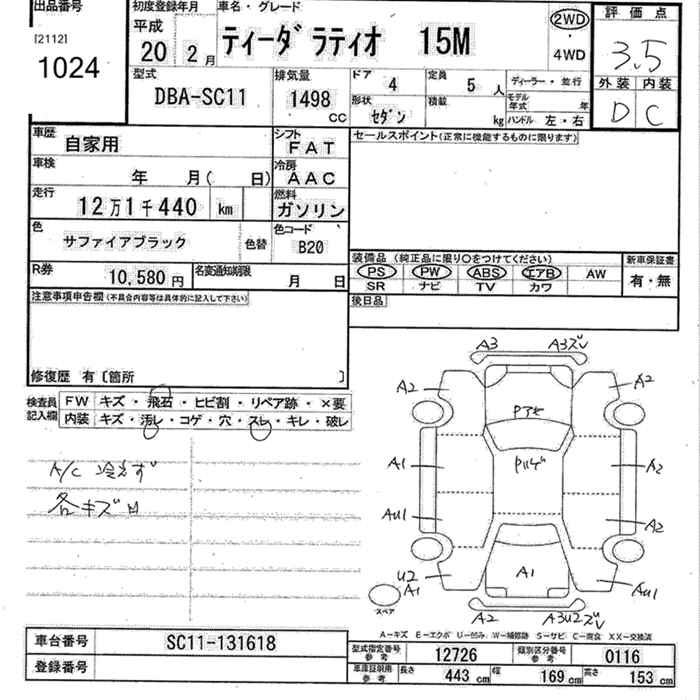 出品番号
[2112]
1024
初度登録年月
平成
20 2 月
車名・グレード
ティーダ ラティオ 15M
2WD
・
4WD
評価点
3.5
外装 内装
D C
型式
DBA-SC11
排気量
1498
CC
ドア 4
定員 5 人
ディーラー・並行
形状 セダン
積載 kg
モデル年式 年
ハンドル 左・右
車歴 自家用
シフト FAT
車検 年 月( 日)
冷房 AAC
走行 12万1千440 km
燃料 ガソリン
色 サファイアブラック
色替
色コード B20
R券 10,580円
名変通知期限 月 日
セールスポイント(正常に機能するものに限ります)
装備品 (純正品に限り○をつけてください)
PS PW ABS エアB AW
SR ナビ TV カワ
新車保証書
有・無
後日品
注意事項申告欄(不具合内容等は具体的に記入して下さい)
修復歴 有〔箇所 〕
検査員
記入欄
FW キズ・飛石・ヒビ割・リペア跡・×要
内装 キズ・汚レ・コゲ・穴・スレ・キレ・破レ
A/C 冷えず
各キズ凹
A3 A3ズレ
A2 A2
Pアセ
A1 A2
AU1 A2
U2
A1
A1
AU1
スペア
A2 A3U2ズレ
A-キズ E-エクボ U-凹み W-補修跡 S-サビ C-腐食 XX-交換済
車台番号 SC11-131618
登録番号
型式指定番号
参考
12726
類別区分番号
参考
0116
車庫証明用
参考
長さ 443 cm
幅 169 cm
高さ 153 cm